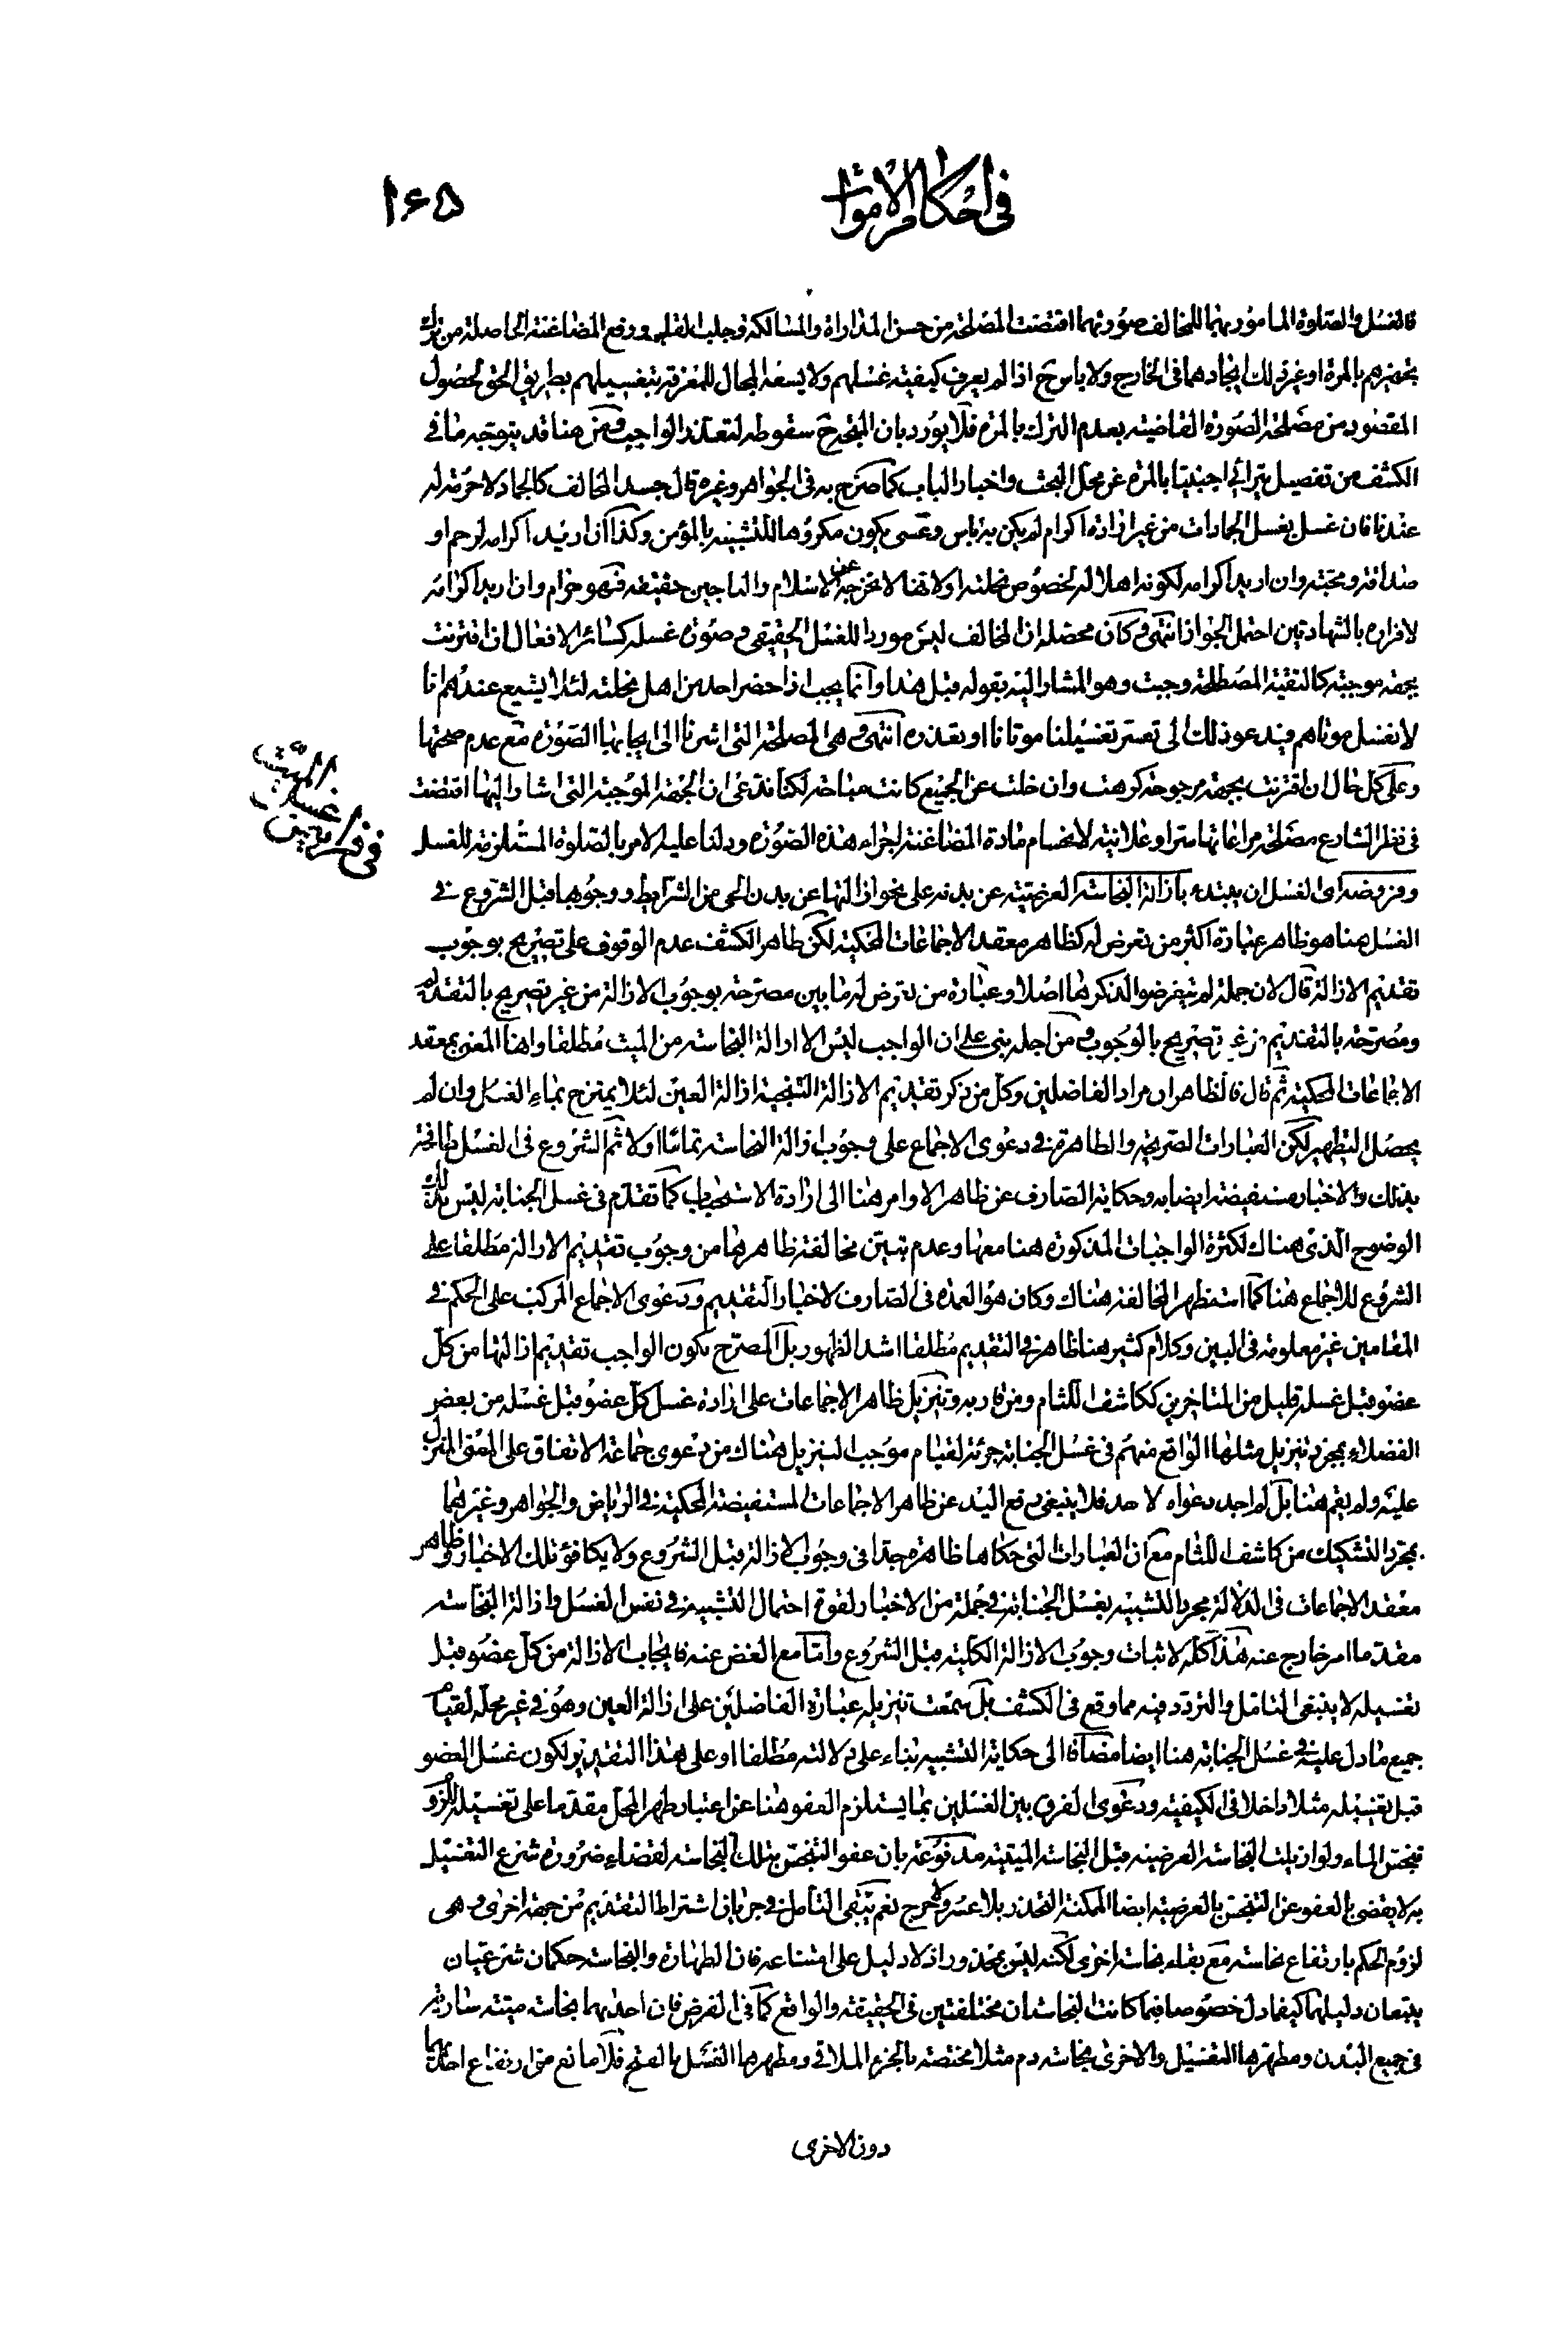 في احكام الاموات
۱۶۵
فالغسل والصلوة المامور بهما للمخالف صورتهما اقتضت المصلحة من حسن المداراة والمسالكة وجلب القلوب ورفع المضاغنة الحاصلة من ترك
تجهيزهم بالمرة او غير ذلك ايجادهما في الخارج ولا باس ح اذا لم يعرف كيفية غسلهم ولا يسعه المجال للمعرفة بتغسيلهم بطريق الحق لحصول
المقصود من مصلحة الصورة القاضية بعدم الترك بالمرة فلا يورد بان المتجه ح سقوطه لتعذر الواجب ومن هنا قد يتوجه ما في
الكشف من تفصيل يترائى اجنبيا بالمرة عن محل البحث واخبار الباب كما صرح به في الجواهر وغيره قال جسد المخالف كالجماد لا حرمة له
عندنا فان غسل بغسل الجمادات من غير ارادة اكرام لم يكن به باس وعسى يكون مكروها للتشبيه بالمؤمن وكذا ان اريد اكرامه لرحم او
صداقة ومحبة وان اريد اكرامه لكونه اهلا له لخصوص نحلته او لانها لا تخرجه عن الاسلام والناجين حقيقة فهو حرام وان اريد اكرامه
لاقراره بالشهادتين احتمل الجواز انتهى وكان محصله ان المخالف ليس موردا للغسل الحقيقي وصورة غسله كسائر الافعال ان اقترنت
بجهة موجبة كالتقية المصطلحة وجبت وهو المشار اليه بقوله قبل هذا وانما يجب اذا حضر احد من اهل نحلته لئلا يشيع عندهم انا
لا نغسل موتاهم فيدعو ذلك الى تعسر تغسيلنا موتانا او تعذره انتهى وهي المصلحة التي اشرنا الى ايجابها الصورة مع عدم صحتها
وعلى كل حال ان اقترنت بجهة مرجوحة كرهت وان خلت عن الجميع كانت مباحة لكنا ندعى ان الجهة الموجبة التي اشار اليها اقتضت
في نظر الشارع مصلحة مراعاتها سرا وعلانية لانحسام مادة المضاغنة اجراء هذه الصورة ودلنا عليه الامر بالصلوة المستلزمة للغسل
وفروضه اى الغسل ان يبتدء بازالة النجاسة العرضية عن بدنه على نحو ازالتها عن بدن الحى من الشرايط ووجوبها قبل الشروع في
الغسل هنا هو ظاهر عبارة اكثر من تعرض له كظاهر معقد الاجماعات المحكية لكن ظاهر الكشف عدم الوقوف على تصريح بوجوب
تقديم الازالة قال لان جملة لم يتعرضوا لذكرها اصلا وعبارة من تعرض له ما بين مصرحة بوجوب الازالة من غير تصريح بالتقديم
ومصرحة بالتقديم من غير تصريح بالوجوب ومن اجله بنى على ان الواجب ليس الا ازالة النجاسة من الميت مطلقا واهنا المغر بمعقد
الاجماعات المحكية ثم قال فالظاهر ان مراد الفاضلين وكل من ذكر تقديم الازالة التنجية ازالة العين لئلا يمتزج بماء الغسل وان لم
يحصل التطهير لكن العبارات الصريحة والظاهرة في دعوى الاجماع على وجوب ازالة النجاسة تماما اولا ثم الشروع في الغسل طافحة
بذلك والاخبار مستفيضة ايضا به وحكاية الصارف عن ظاهر الاوامر هنا الى ارادة الاستحباب كما تقدم في غسل الجنابة ليس بذلك
الوضوح الذى هناك لكثرة الواجبات المذكورة هنا معها وعدم تبين مخالفة ظاهرها من وجوب تقديم الازالة مطلقا على
الشروع للاجماع هنا كما استظهر المخالفة هناك وكان هو العمدة في الصارف لاخبار التقديم ودعوى الاجماع المركب على الحكم في
المقامين غير معلومة في البين وكلام كثير هنا ظاهر في التقديم مطلقا اشد الظهور بل المصرح بكون الواجب تقديم ازالتها من كل
عضو قبل غسله قليل من المتاخرين ككاشف اللثام ومن قاربه وتنزيل ظاهر الاجماعات على ارادة غسل كل عضو قبل غسله من بعض
الفضلاء بمجرد تنزيل مثلها الواقع منهم في غسل الجنابة جرئة لقيام موجب التنزيل هناك من دعوى جماعة الاتفاق على المعنى المنزل
عليه ولم يقم هنا بل لم اجد دعواه لاحد فلا ينبغى رفع اليد عن ظاهر الاجماعات المستفيضة المحكية في الرياض والجواهر وغيرهما
بمجرد التشكيك من كاشف اللثام مع ان العبارات التي حكاها ظاهرة جدا في وجوب الازالة قبل الشروع ولا يكافؤ تلك الاخبار وظاهر
معقد الاجماعات في الدلالة مجرد التشبيه بغسل الجنابة في جملة من الاخبار لقوة احتمال التشبيه في نفس الغسل وازالة النجاسة
مقدما امر خارج عنه هذا كله لاثبات وجوب الازالة الكلية قبل الشروع وامّا مع الغض عنه فايجاب الازالة من كل عضو قبل
تغسيله لا ينبغى التامل والتردد فيه مما وقع في الكشف بل سمعت تنزيله عبارة الفاضلين على ازالة العين وهو في غير محله لقيام
جميع ما دل عليه في غسل الجنابة هنا ايضا مضافا الى حكاية التشبيه بناء على دلالته مطلقا او على هذا التقدير لكون غسل العضو
قبل تغسيله مثلا داخلا في الكيفية ودعوى الفرق بين الغسلين بما يستلزم العفو هنا عن اعتبار طهر المحل مقدما على تغسيله للزوم
تنجس الماء ولو ازيلت النجاسة العرضية قبل النجاسة الميتية مدفوعة بان عفو التنجس بتلك النجاسة لقضاء ضرورة شرع التغسيل
به لا يقضى بالعفو عن التنجس بالعرضية ايضا الممكنة التحذر بلا عسر ولا حرج نعم يبقى التامل في جريان اشتراط التقديم من جهة اخرى وهى
لزوم الحكم بارتفاع نجاسة مع بقاء نجاسة اخرى لكنه ليس بمحذور اذ لا دليل على امتناعه فان الطهارة والنجاسة حكمان شرعيان
يتبعان دليلهما كيفما دل خصوصا فيما كانت النجاستان مختلفتين في الحقيقة والواقع كما في الفرض فان احديهما نجاسة ميتة سارية
في جميع البدن ومطهرها التغسيل والاخرى نجاسة دم مثلا مختصة بالجزء الملاقى ومطهرها الغسل بالفتح فلا مانع من ارتفاع احديهما
دون الاخرى
في
غسل الميت